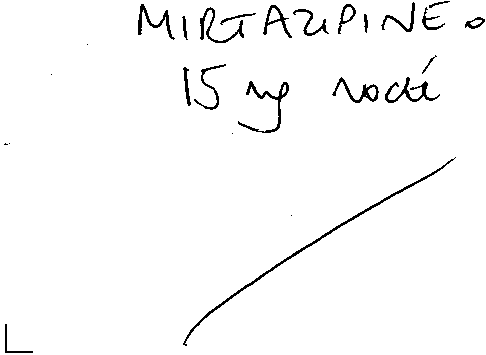 MIRTAZIPINE.
15 mg nocté